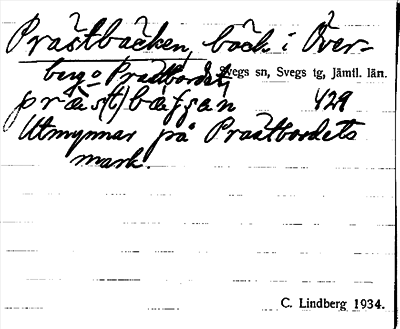 Prästbäcken, bäck i Över-
berg o Prästbordet, Svegs sn, Svegs tg, Jämtl. län.
präs(t)bäḱan 429
Utmynnar på Prästbordets
mark.
C. Lindberg 1934.